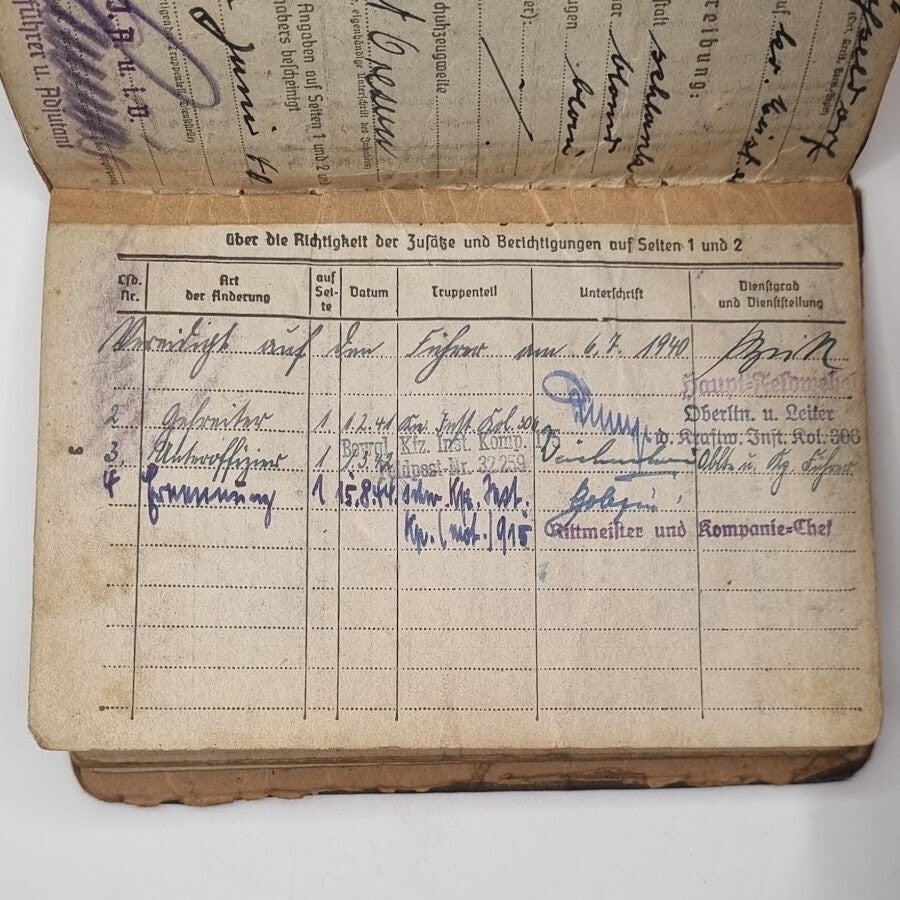 J. A. u. i. V.
führer u. Adjutant
Juni
Angaben auf Seiten 1 und 2
habers bescheinigt
eigenhändige Unterschrift des Inhabers
schuhzeugweite
blau
blond
schlank
reibung:
über die Richtigkeit der Zusätze und Berichtigungen auf Seiten 1 und 2
Lfd. Nr. Art der Änderung auf Seite Datum Truppenteil Unterschrift Dienstgrad und Dienststellung
Vereidigt auf den Führer am 6.7. 1940
Haupt-Feldwebel
Oberltn. u. Leiter
2 Gefreiter 1 1.2.41 Kw. Inst. Kol. 306
d. Kraftw. Inst. Kol. 306
Bewgl. Kfz. Inst. Komp.
3. Unteroffizier 1 1.3.42 Oblt. u. Kp. Führer
Feldpost-Nr. 32 259
4 Ernennung 1 15.8.44. schw. Kfz. Inst.
Kp. (mot.) 915
Rittmeister und Kompanie-Chef
3